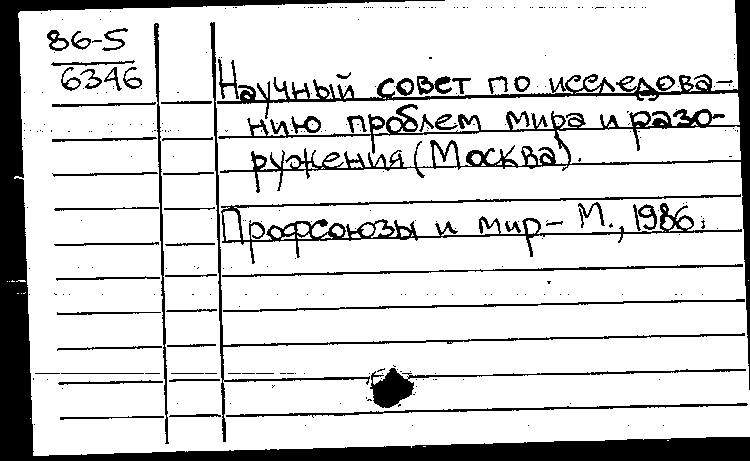 86-5
6346
Научный совет по исследова-
нию проблем мира и разо-
ружения (Москва).
Профсоюзы и мир - М., 1986.